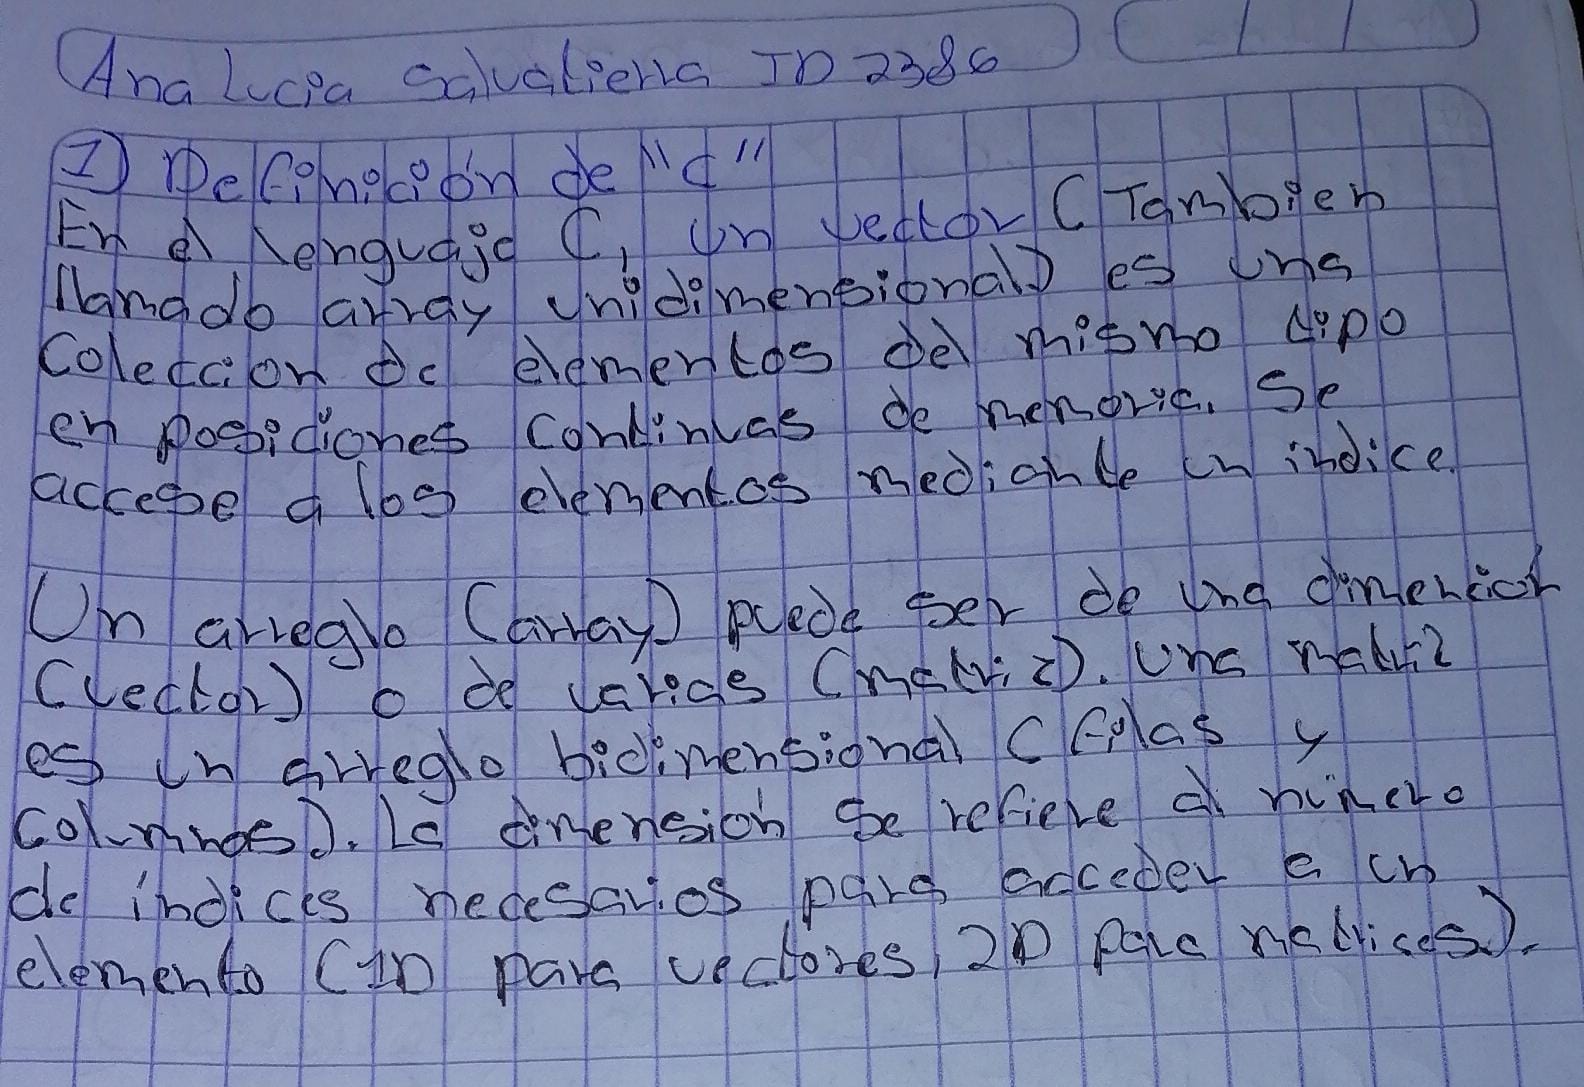 Ana Lucia Salvatierra ID 2386
1) Definición de "C"
En el lenguaje C, un vector (Tambien
llamado array unidimensional) es una
Coleccion de elementos del mismo tipo
en posiciones continuas de memoria. Se
accese a los elementos mediante un indice.
Un arreglo (array) puede ser de una dimención
(vector) o de varias (matriz). Una matriz
es un arreglo bidimensional (filas y
columnas). La dimensión se refiere al número
de índices necesarios para acceder a un
elemento (1D para vectores, 2D para matrices).